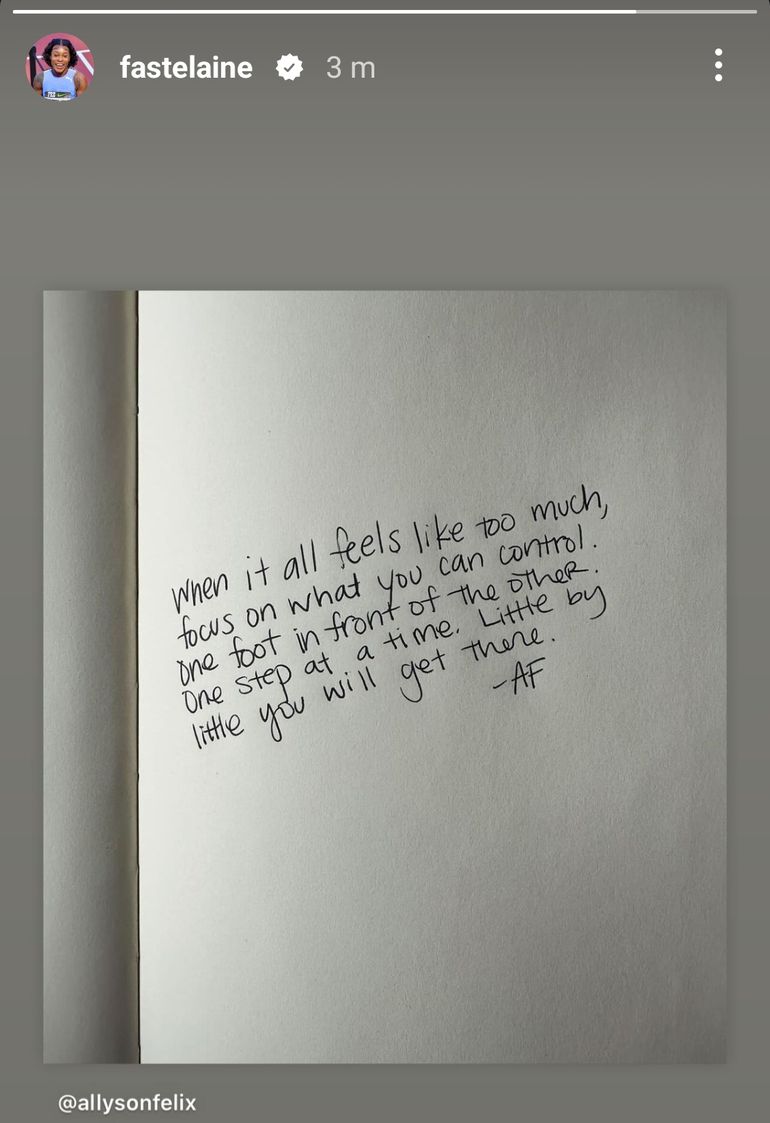 fastelaine 3 m
When it all feels like too much,
focus on what you can control.
One foot in front of the other.
One step at a time. Little by
little you will get there.
-AF
@allysonfelix